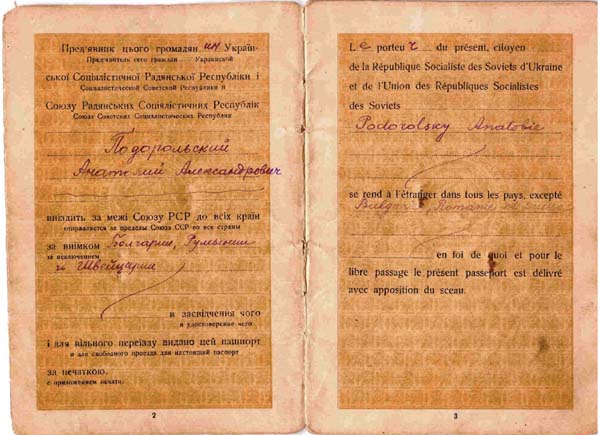 Пред'явник цього громадян ин Украïн-
Предъявитель сего граждан Украинской
ської Соціялістичної Радянської Республіки і
Социалистической Советской Республики и
Союзу Радянських Соціялістичних Республік
Союза Советских Социалистических Республик
Подорольский
Анатолий Александрович
виїздить за межі Союзу РСР до всіх країн
отправляется за пределы Союза ССР во все страны
за винятком Болгарии, Румынии
за исключением
и Швейцарии
в засвідчення чого
в удостоверение чего
і для вільного переїзду видано цей пашпорт
и для свободного проезда дан настоящий паспорт
за печаткою.
с приложением печати.
2
L e porteu r du présent, citoyen
de la République Socialiste des Soviets d'Ukraine
et de l'Union des Républiques Socialistes
des Soviets
Podorolsky Anatolie
se rend à l'étranger dans tous les pays, excepté
Roumanie
en foi de quoi et pour le
libre passage le présent passeport est délivré
avec apposition du sceau.
3